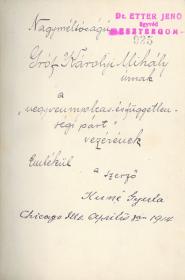 Nagyméltóságú
Dr. ETTER JENŐ
ügyvéd
ESZTERGOM
Gróf Károlyi Mihály
úrnak
a
"negyvennyolcas és függetlenségi párt"
vezérének
Emlékül
a szerző
Kuné Gyula
Chicago Ills. Április 19-1914